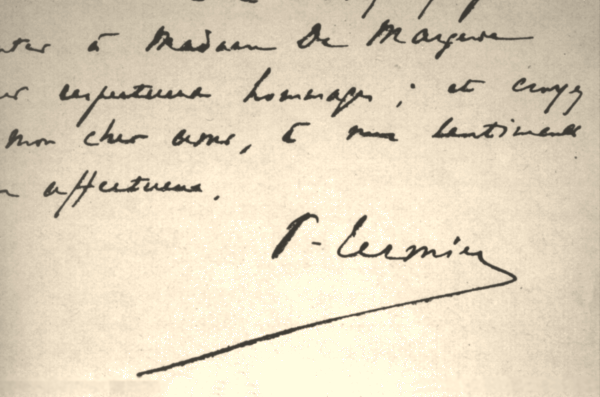 à Madame De Margerie
respectueux hommages ; et croyez
mon cher ami, à mes sentiments
affectueux.
P. Termier